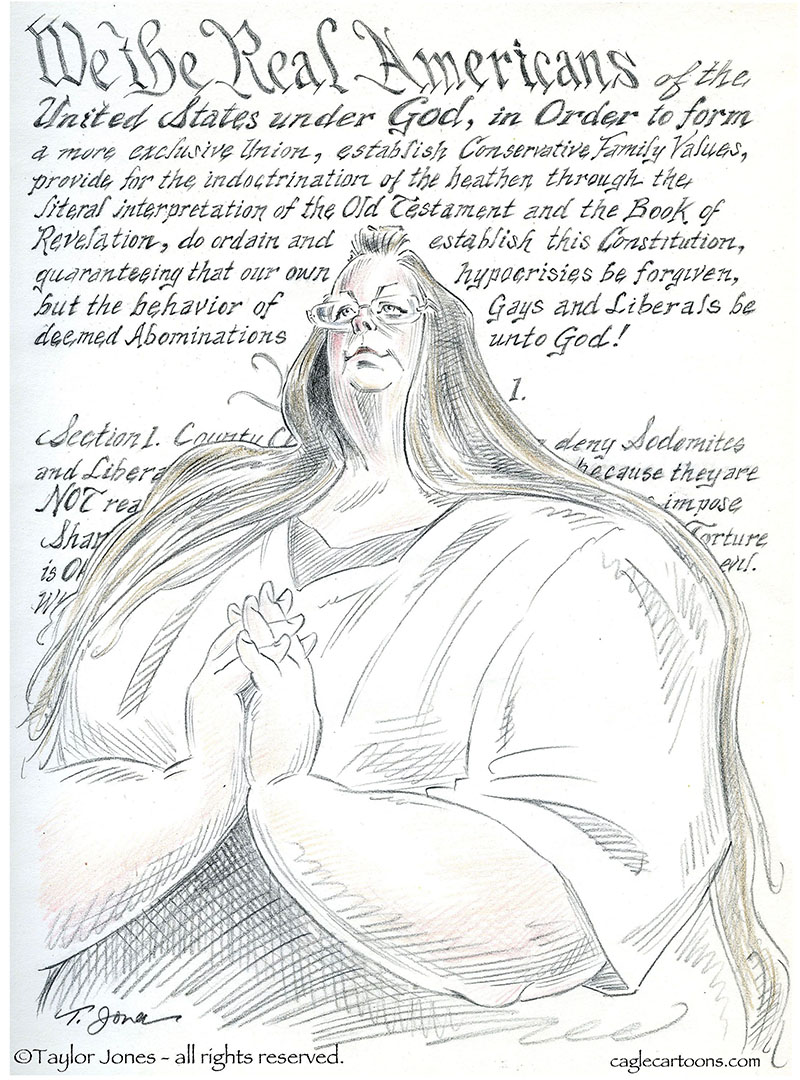 We the Real Americans of the
United States under God, in Order to form
a more exclusive Union, establish Conservative Family Values,
provide for the indoctrination of the heathen through the
literal interpretation of the Old Testament and the Book of
Revelation, do ordain and establish this Constitution,
guaranteeing that our own hypocrisies be forgiven,
but the behavior of Gays and Liberals be
deemed Abominations unto God!
1.
Section 1. County deny Sodomites
and because they are
NOT impose
Torture
is evil.
T. Jones
©Taylor Jones - all rights reserved.
caglecartoons.com